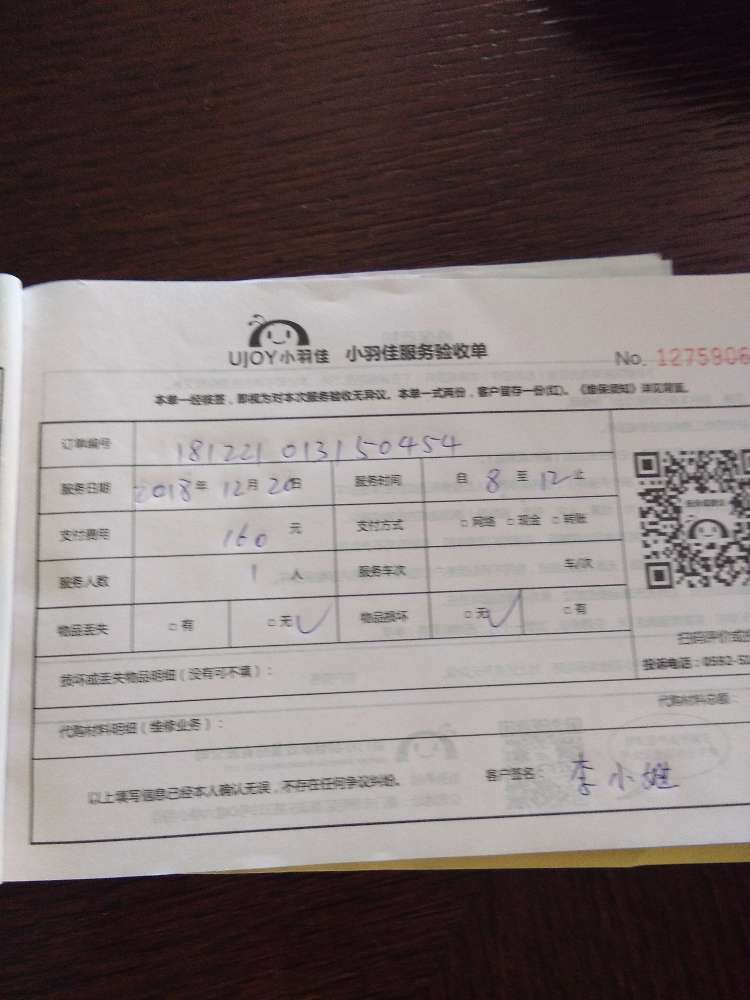 UJOY小羽佳 小羽佳服务验收单 No. 1275906
本单一经核签，即视为对本次服务验收无异议。本单一式两份，客户留存一份(红)。《维保须知》详见背面。
订单编号 181221013150454
服务日期 2018年 12月 20日 服务时间 自 8 至 12 止
支付费用 160 元 支付方式 □网络 □现金 □转账
服务人数 1 人 服务车次 车/次
物品丢失 □有 □无 物品损坏 □无 □有
扫码评价或
投诉电话：0592-5
损坏或丢失物品明细（没有可不填）：
代购材料明细（维修业务）： 代购材料总额：
以上填写信息已经本人确认无误，不存在任何争议纠纷。 客户签名： 李小姐